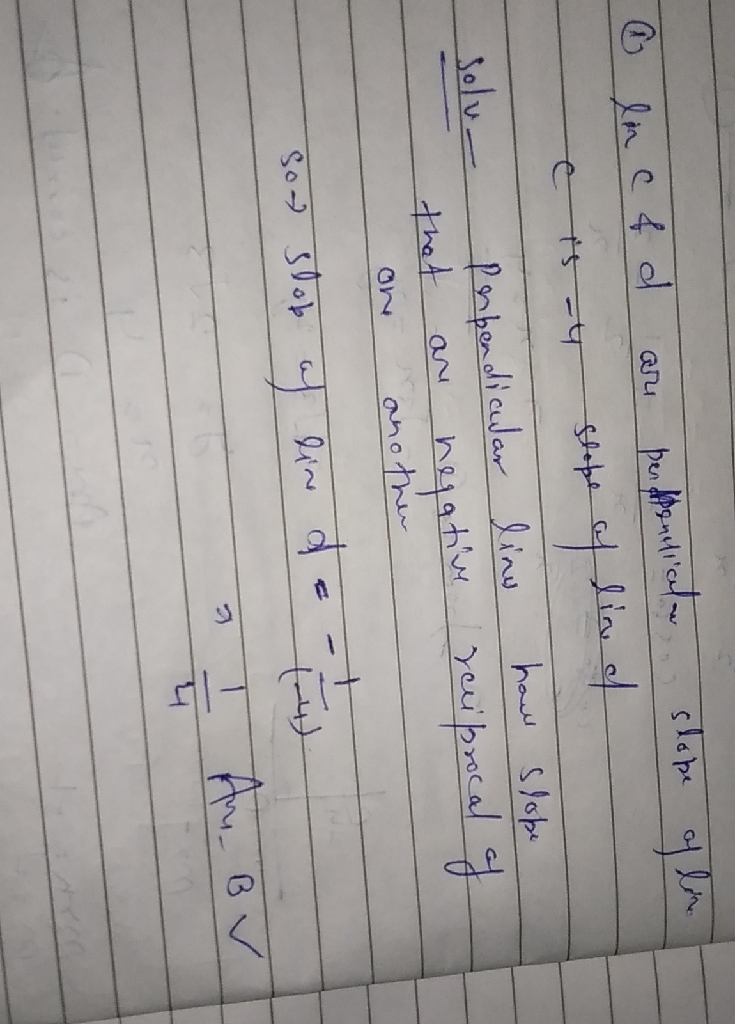 ① line c & d are perpendicular, slope of line
c is -4 slope of line d
Solv - Perpendicular line have slope
that are negative reciprocal of
one another
so → slop of line d = - 1/(-4)
= 1/4 Ans - B ✓